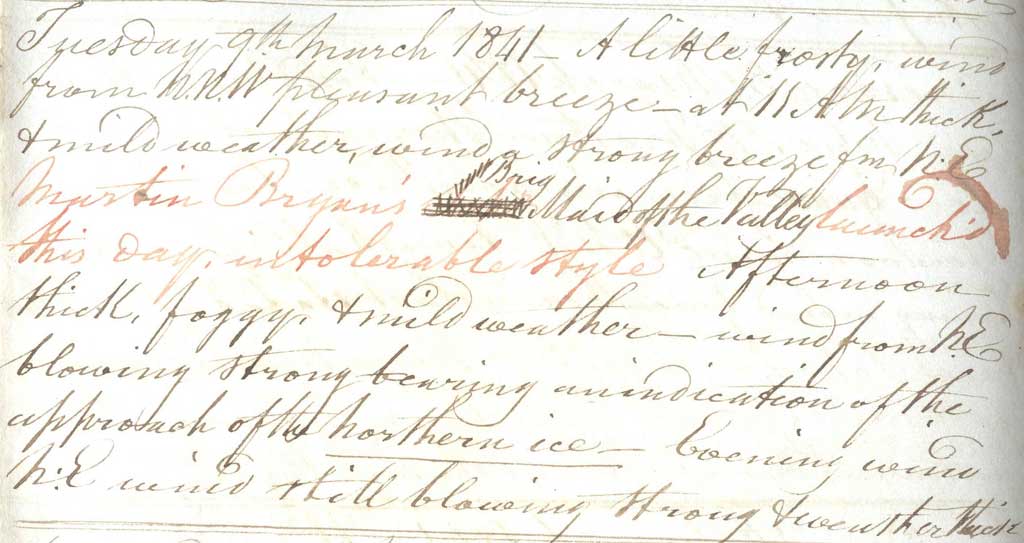 Tuesday 9th March 1841 – A little frosty, wind
from N.N.W pleasant breeze – at 11 AM thick,
& mild weather, wind a strong breeze fm N.E
Brig
Martin Bryan's Maid of the Valley launch'd
this day, in tolerable style Afternoon
thick, foggy, & mild weather – wind from N.E
blowing strong bearing an indication of the
approach of the Northern ice – Evening wind
N.E wind still blowing strong & weather thick